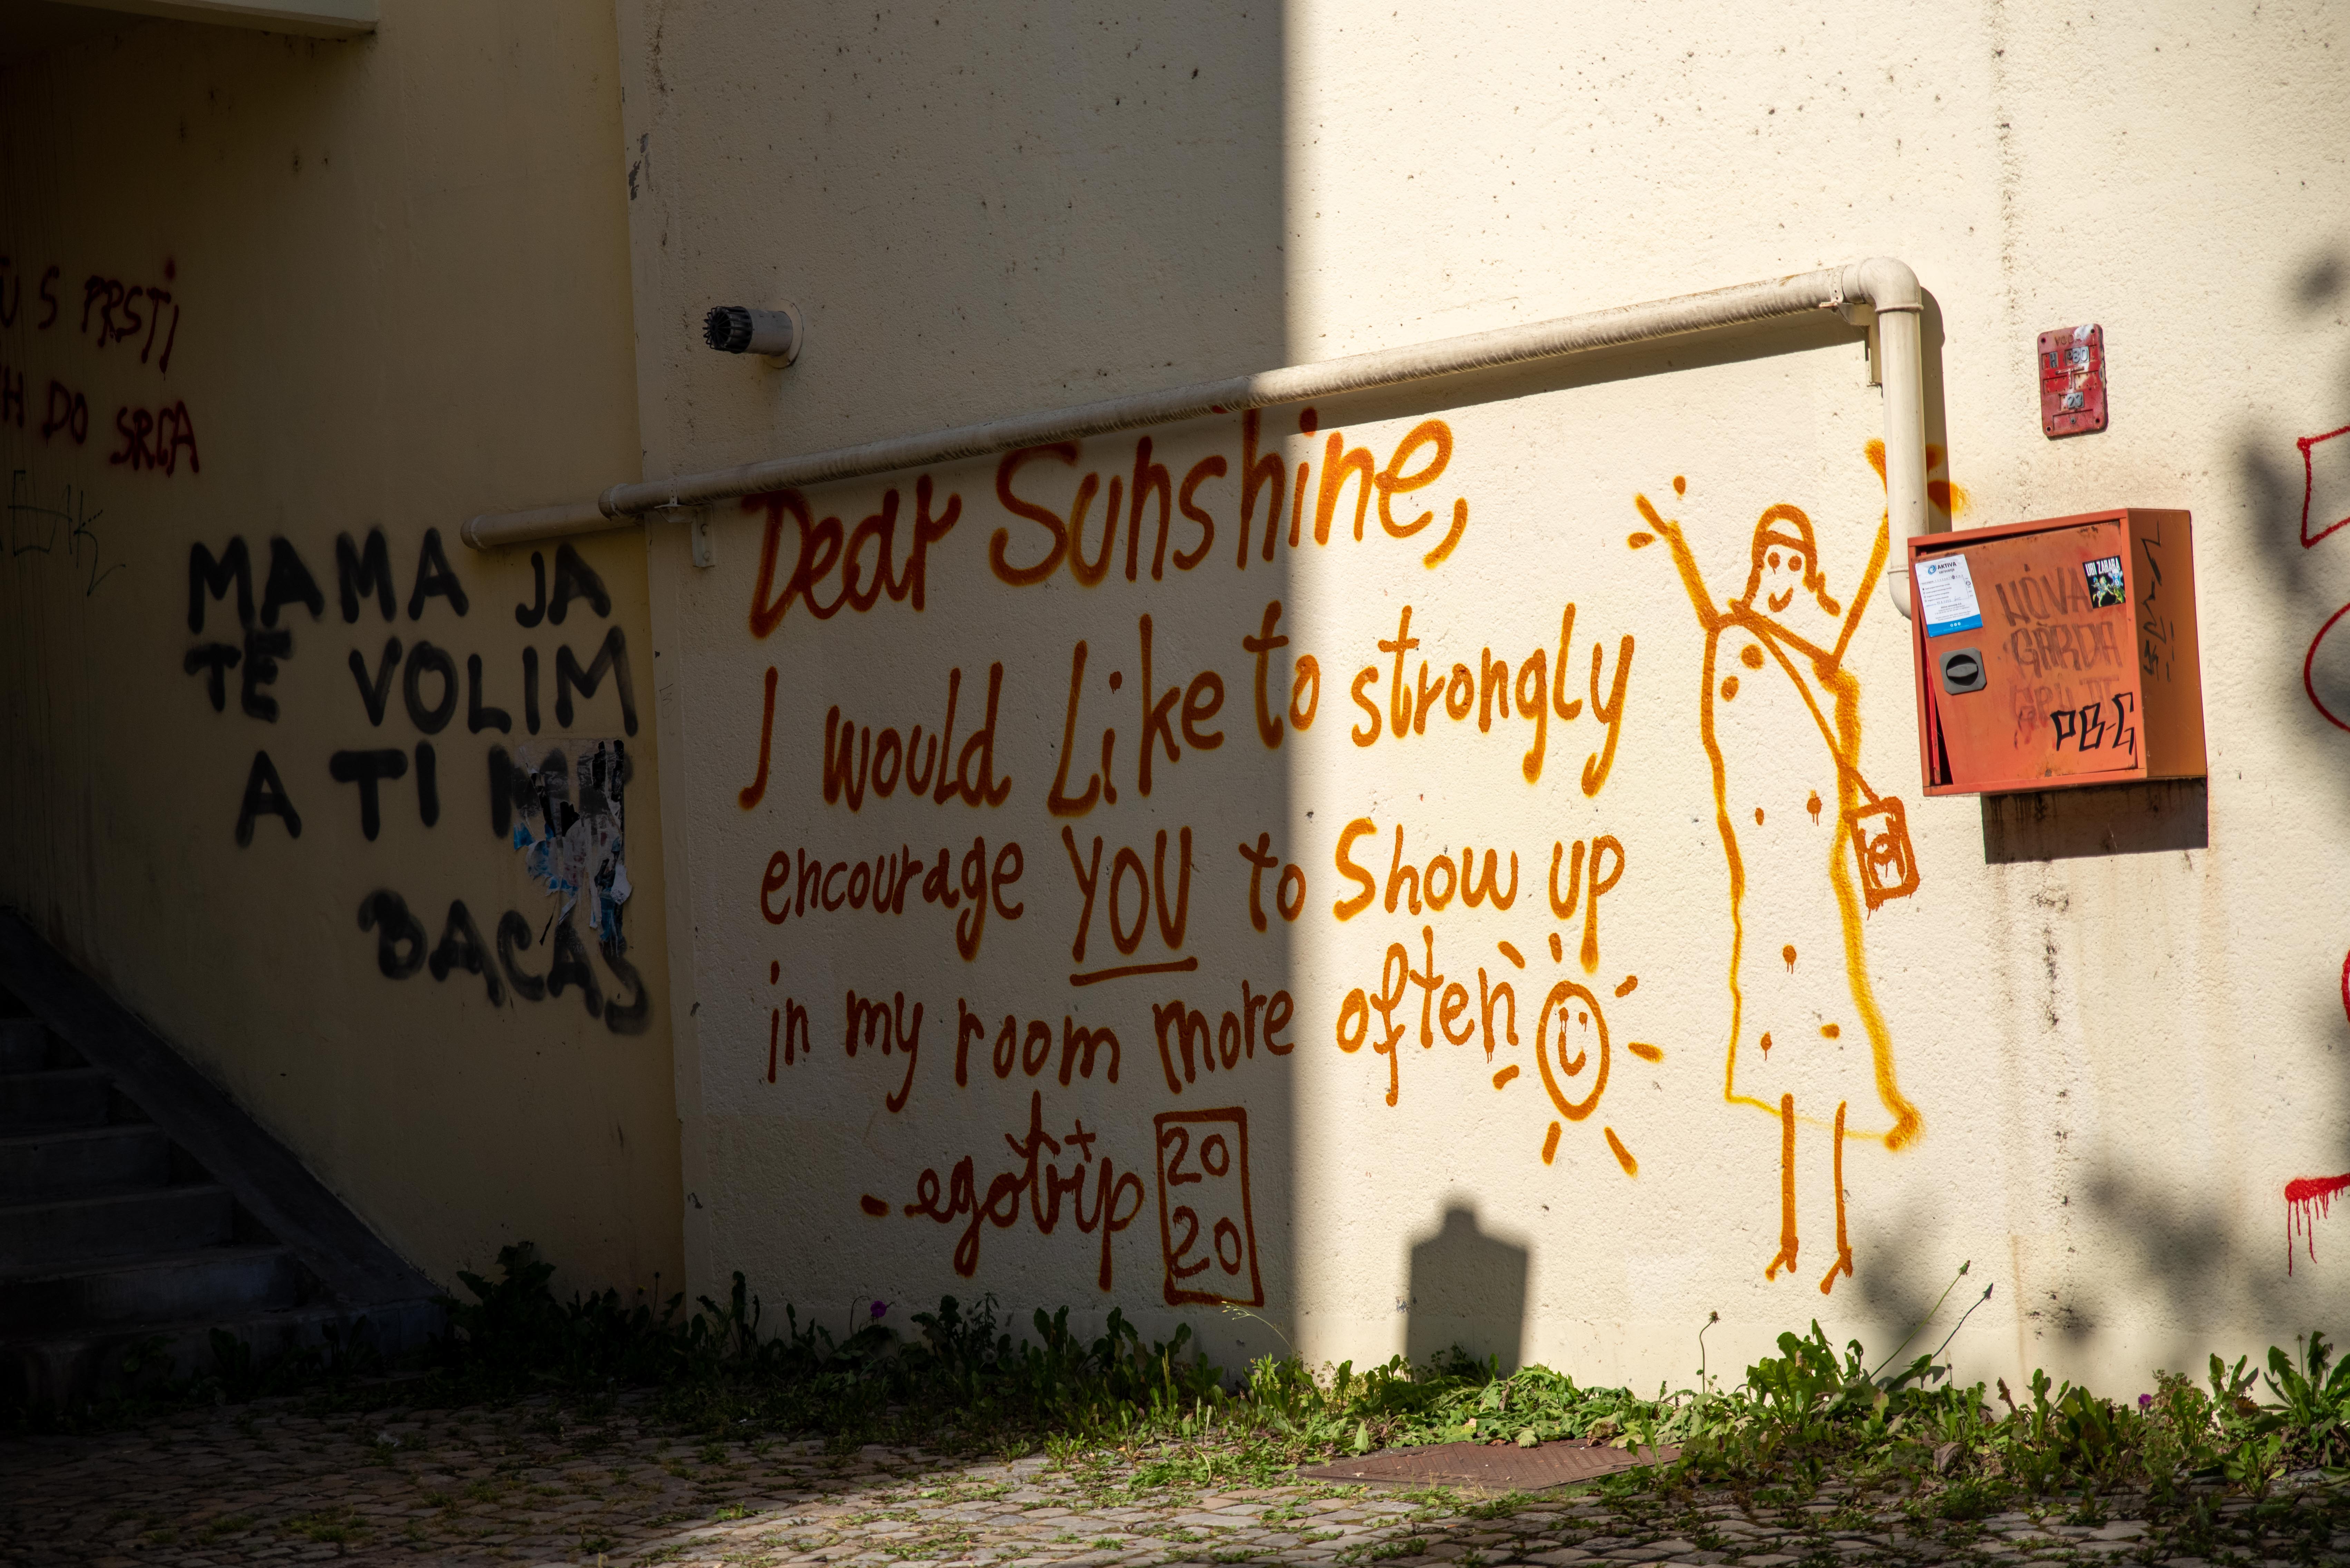 S PRSTI
DO SRCA
MAMA JA
TE VOLIM
A TI
BACAŠ
Dear Sunshine,
I would Like to strongly
encourage YOU to Show up
in my room more often
-egotrip
20
20
AKTIVA
URI ZAHARA
NOVA
GARDA